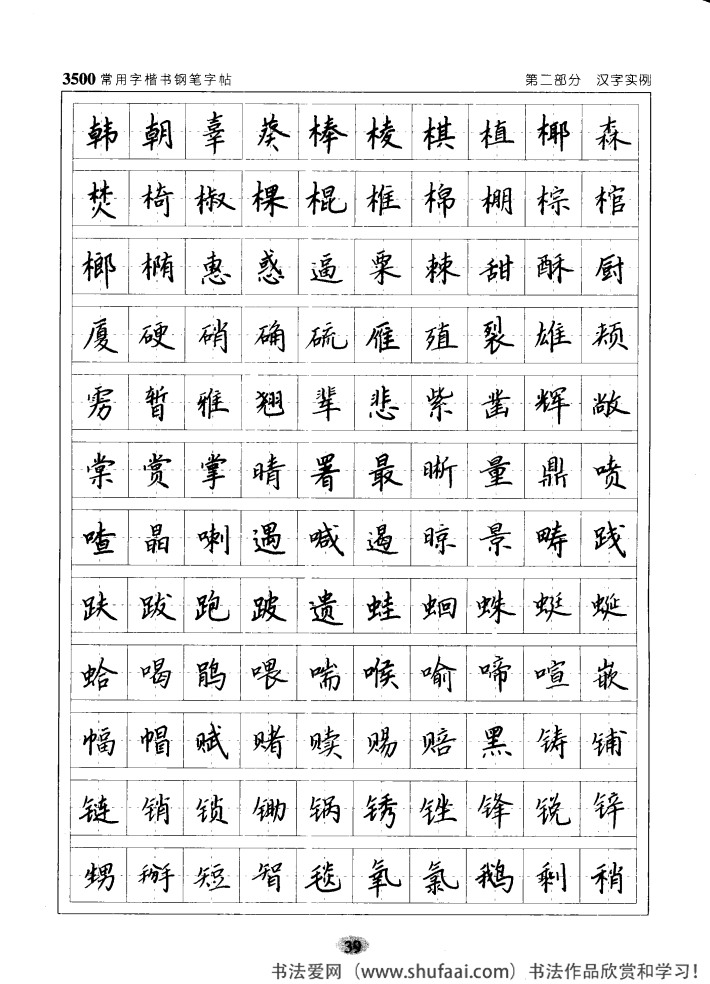 3500常用字楷书钢笔字帖 第二部分 汉字实例
韩朝辜葵棒棱棋植椰森
焚椅椒棵棍椎棉棚棕棺
榔椭惠惑逼粟棘甜酥厨
厦硬硝确硫雁殖裂雄颊
雳暂雅翘辈悲紫凿辉敞
棠赏掌晴署最晰量鼎喷
喳晶喇遇喊遏晾景畴践
跌跋跑跛遗蛙蛔蛛蜓蜒
蛤喝鹃喂喘喉喻啼喧嵌
幅帽赋赌赎赐赔黑铸铺
链销锁锄锅锈锉锋锐锌
甥掰短智毯氧氯鹅剩稍
39
书法爱网（www.shufaai.com）书法作品欣赏和学习！